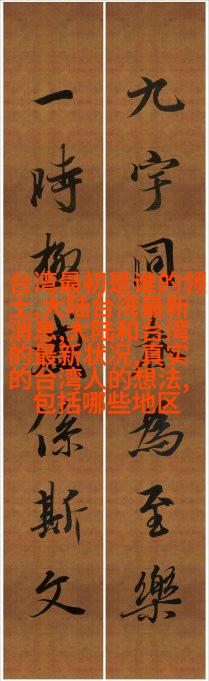 九宇同為至樂
一時係斯文
台湾最初是谁的领
土,大陆台湾最新
消息,大陆和台湾
的最新状况,真实
的台湾人的想法,
包括哪些地区